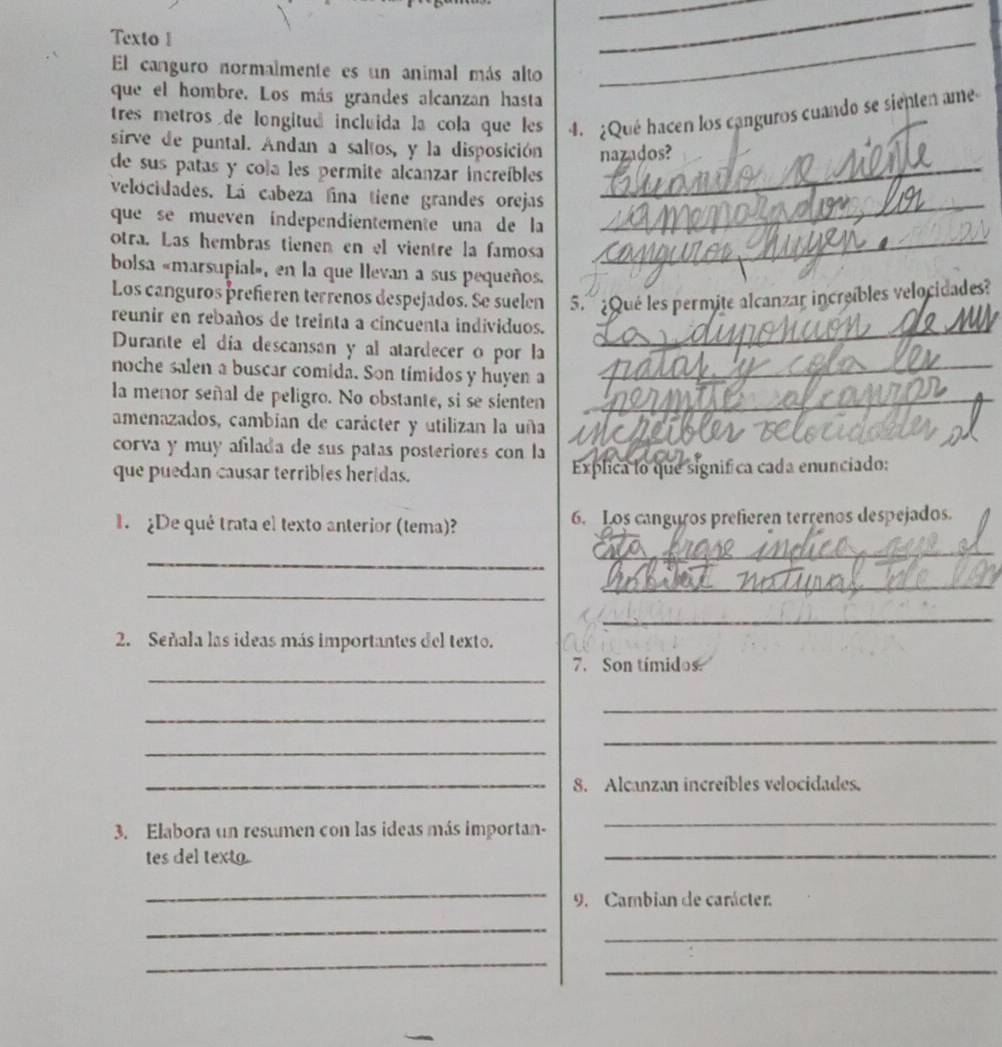 Texto 1
El canguro normalmente es un animal más alto
que el hombre. Los más grandes alcanzan hasta
tres metros de longitud incluida la cola que les
sirve de puntal. Andan a saltos, y la disposición
de sus patas y cola les permite alcanzar increíbles
velocidades. La cabeza fina tiene grandes orejas
que se mueven independientemente una de la
otra. Las hembras tienen en el vientre la famosa
bolsa «marsupial», en la que llevan a sus pequeños.
Los canguros prefieren terrenos despejados. Se suelen
reunir en rebaños de treinta a cincuenta individuos.
Durante el día descansan y al atardecer o por la
noche salen a buscar comida. Son tímidos y huyen a
la menor señal de peligro. No obstante, si se sienten
amenazados, cambian de carácter y utilizan la uña
corva y muy afilada de sus patas posteriores con la
que puedan causar terribles heridas.
1. ¿De qué trata el texto anterior (tema)?
2. Señala las ideas más importantes del texto.
3. Elabora un resumen con las ideas más importan-
tes del texto.
4. ¿Qué hacen los canguros cuando se sienten ame-
nazados?
Cuando se siente
amenazados, los
canguros, huyen.
5. ¿Qué les permite alcanzar increíbles velocidades?
La disposición de sus
patas y cola les
permite alcanzar
increibles velocidades al
saltar
Explica lo que significa cada enunciado:
6. Los canguros prefieren terrenos despejados.
Esta frase indica que el
habitat natural de los
7. Son tímidos.
8. Alcanzan increíbles velocidades.
9. Cambian de carácter.